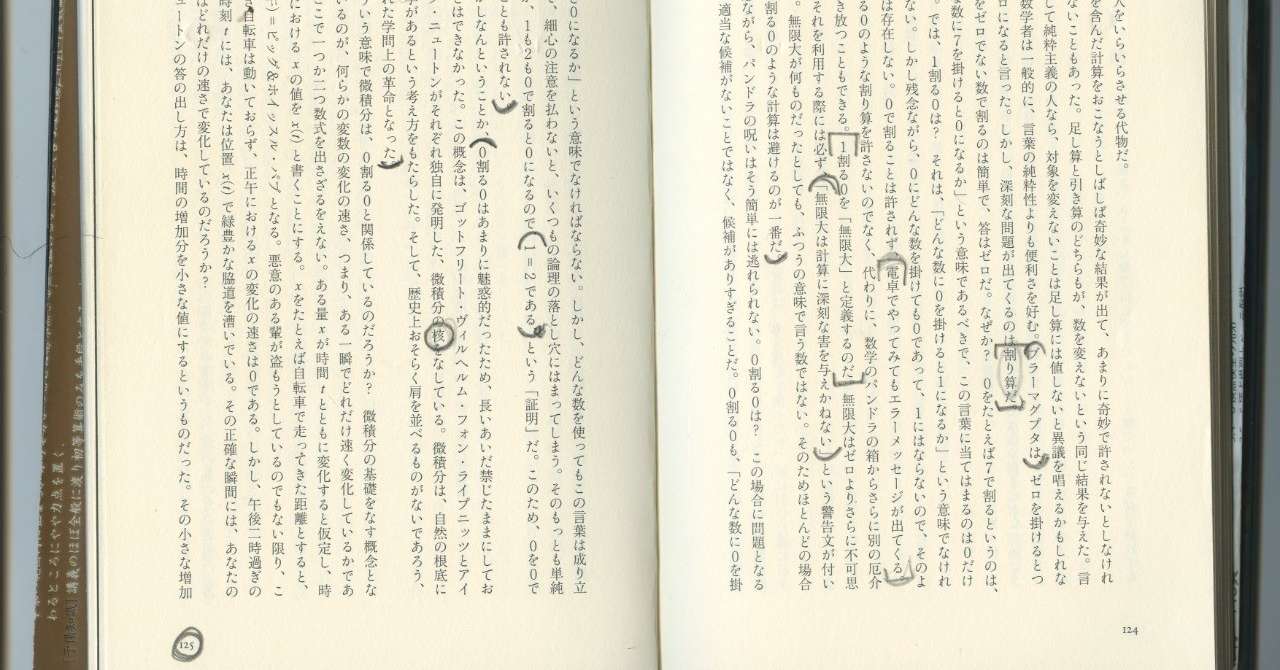 人をいらいらさせる代物だ。
を含んだ計算をおこなうとしばしば奇妙な結果が出て、あまりに奇妙で許されないとしなけれ
ないこともあった。足し算と引き算のどちらもが、数を変えないという同じ結果を与えた。言
して純粋主義の人なら、対象を変えないことは足し算には値しないと異議を唱えるかもしれな
数学者は一般的に、言葉の純粋性よりも便利さを好む。ブラーマグプタは、ゼロを掛けるとつ
ロになると言った。しかし、深刻な問題が出てくるのは割り算だ。
をゼロでない数で割るのは簡単で、答はゼロだ。なぜか？　0をたとえば7で割るというのは、
な数に7を掛けると0になるか」という意味であるべきで、この言葉に当てはまるのは0だけ
。では、1割る0は？　それは、「どんな数に0を掛けると1になるか」という意味でなけれ
ない。しかし残念ながら、0にどんな数を掛けても0であって、1にはならないので、そのよ
は存在しない。0で割ることは許されず、電卓でやってみてもエラーメッセージが出てくる。
る0のような割り算を許さないのでなく、代わりに、数学のパンドラの箱からさらに別の厄介
き放つこともできる。1割る0を「無限大」と定義するのだ。無限大はゼロよりさらに不可思
それを利用する際には必ず、「無限大は計算に深刻な害を与えかねない」という警告文が付い
。無限大が何ものだったとしても、ふつうの意味で言う数ではない。そのためほとんどの場合
割る0のような計算は避けるのが一番だ。
ながら、パンドラの呪いはそう簡単には逃れられない。0割る0は？　この場合に問題となる
適当な候補がないことではなく、候補がありすぎることだ。0割る0も、「どんな数に0を掛
124
と0になるか」という意味でなければならない。しかし、どんな数を使ってもこの言葉は成り立
、細心の注意を払わないと、いくつもの論理の落とし穴にはまってしまう。そのもっとも単純
が、1も2も0で割ると0になるので「1=2である」という「証明」だ。このため、0を0で
ことも許されない。
かしなんということか、0割る0はあまりに魅惑的だったため、長いあいだ禁じたままにしてお
とはできなかった。この概念は、ゴットフリート・ヴィルヘルム・フォン・ライプニッツとアイ
ク・ニュートンがそれぞれ独自に発明した、微積分の核をなしている。微積分は、自然の根底に
学があるという考え方をもたらした。そして、歴史上おそらく肩を並べるものがないであろう、
れた学問上の革命となった。
ういう意味で微積分は、0割る0と関係しているのだろうか？　微積分の基礎をなす概念とな
いるのが、何らかの変数の変化の速さ、つまり、ある一瞬でどれだけ速く変化しているかであ
ここで一つか二つ数式を出さざるをえない。ある量xが時間tとともに変化すると仮定し、時
における x の値を x(t) と書くことにする。xをたとえば自転車で走ってきた距離とすると、
)=ビッグ&ホイッスル・パブとなる。悪意のある輩が盗もうとしているのでもない限り、こ
き自転車は動いておらず、正午におけるxの変化の速さは0である。しかし、午後二時過ぎの
時刻tには、あなたは位置 x(t) で緑豊かな脇道を漕いでいる。その正確な瞬間には、あなたの
はどれだけの速さで変化しているのだろうか？
ュートンの答の出し方は、時間の増加分を小さな値にするというものだった。その小さな増加
125
わるところにやや力点を置く、
講義のほぼ全般に渡り初等算術のみを手段と